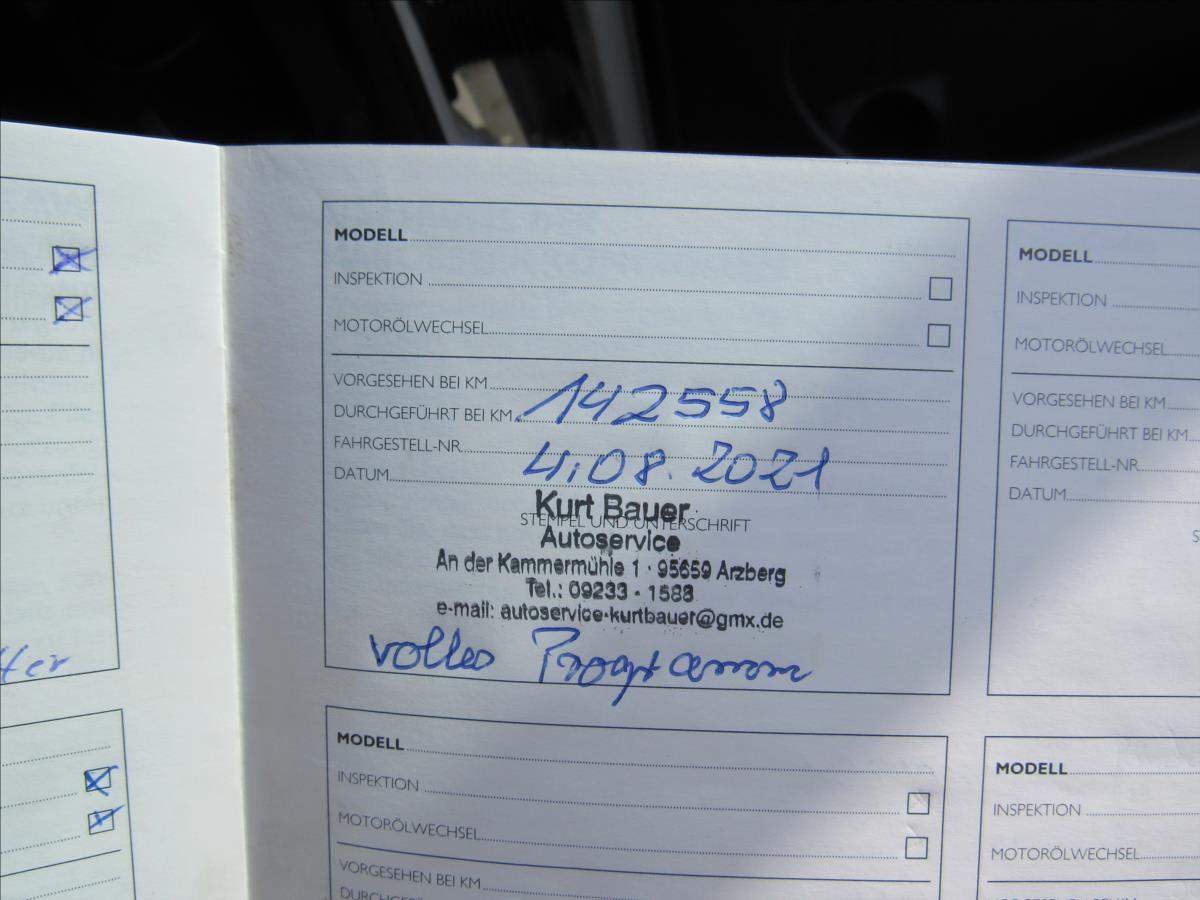 MODELL
INSPEKTION
MOTORÖLWECHSEL
VORGESEHEN BEI KM
DURCHGEFÜHRT BEI KM 142558
FAHRGESTELL-NR.
DATUM 4.08.2021
STEMPEL UND UNTERSCHRIFT
Kurt Bauer
Autoservice
An der Kammermühle 1 · 95659 Arzberg
Tel.: 09233 - 1588
e-mail: autoservice-kurtbauer@gmx.de
volles Programm
MODELL
INSPEKTION
MOTORÖLWECHSEL
VORGESEHEN BEI KM
DURCHGEFÜHRT BEI KM
FAHRGESTELL-NR.
DATUM
MODELL
INSPEKTION
MOTORÖLWECHSEL
VORGESEHEN BEI KM
MODELL
INSPEKTION
MOTORÖLWECHSEL